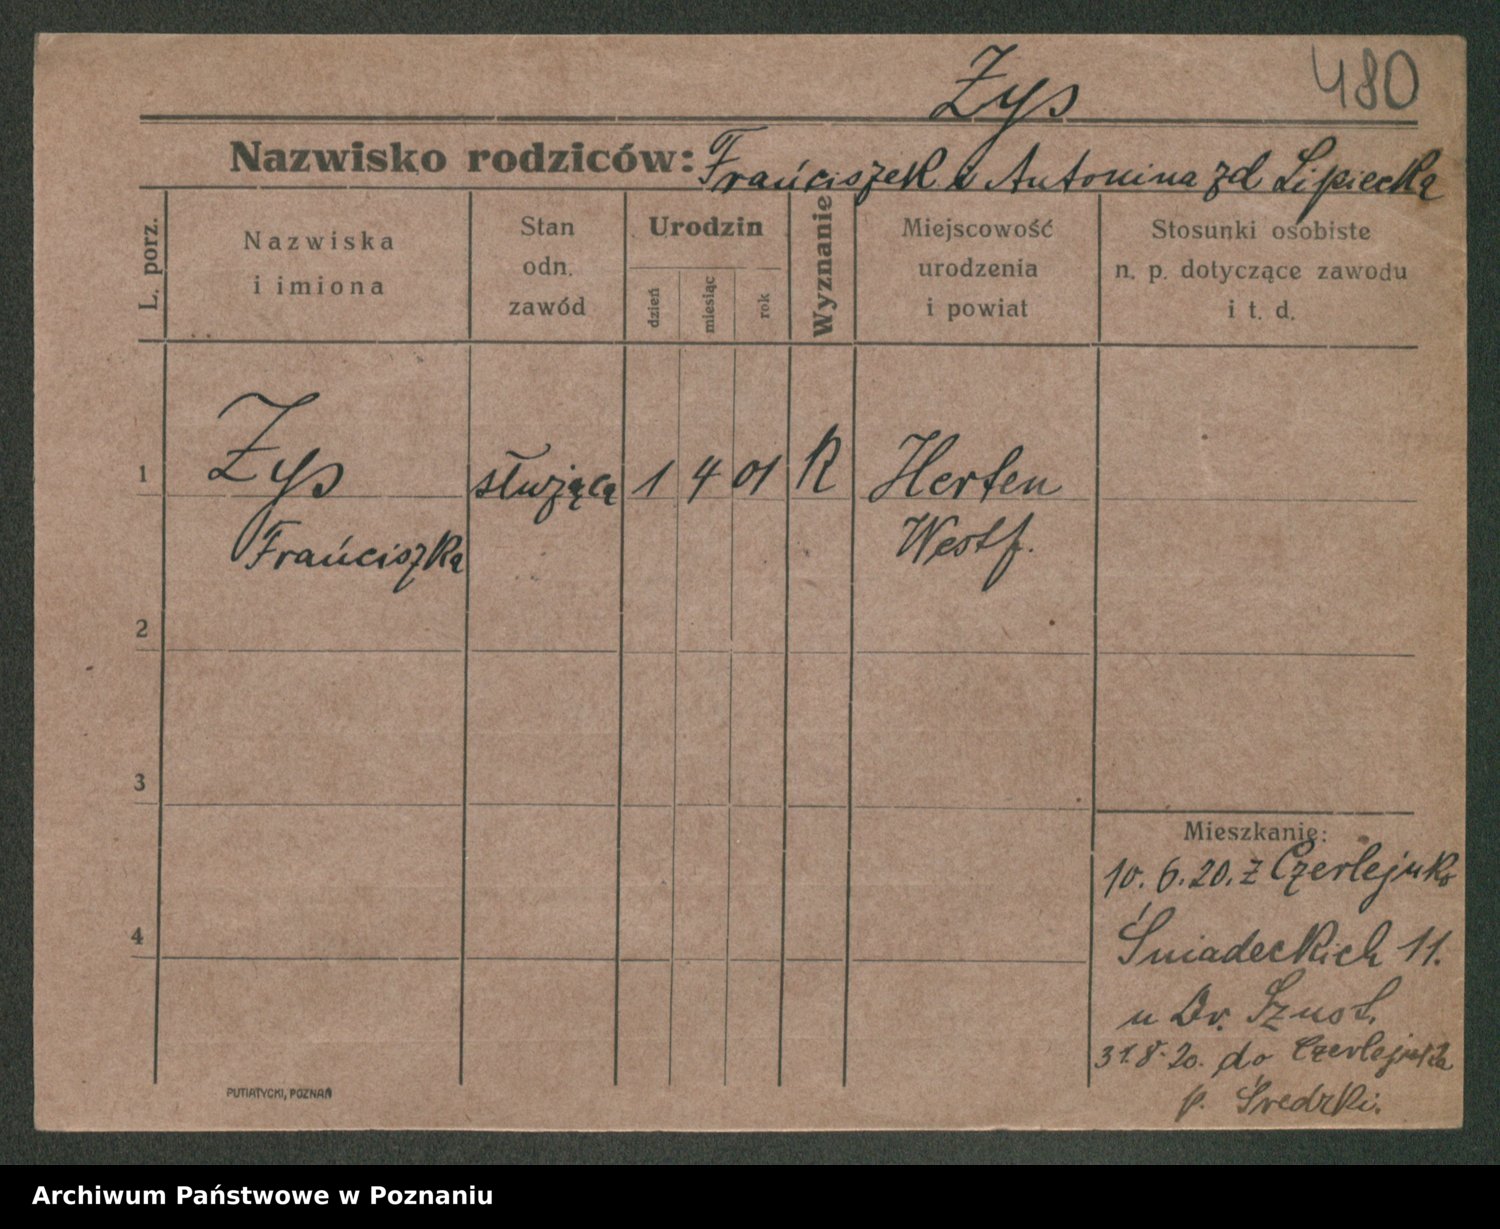 Żys
480
Nazwisko rodziców: Franciszek i Antonina zd Lipiecka
L. porz.
Nazwiska
i imiona
Stan
odn.
zawód
Urodzin
dzień
miesiąc
rok
Wyznanie
Miejscowość
urodzenia
i powiat
Stosunki osobiste
n. p. dotyczące zawodu
i t. d.
1 Żys służąca 1 4 01 R Herten
Franciszka Westf.
2
3
4
Mieszkanie:
10. 6. 20. z Czerlejnko
Śniadeckich 11.
u Dr. Sznot.
31. 8. 20. do Czerlejnka
p. Średzki.
PUTIATYCKI, POZNAŃ
Archiwum Państwowe w Poznaniu